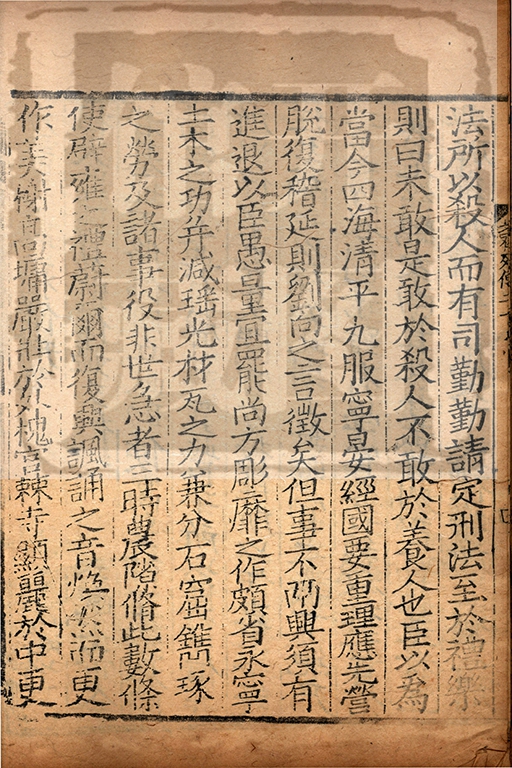 法所以殺人而有司勤勤請定刑法至於禮樂
則曰未敢是敢於殺人不敢於養人也臣以為
當今四海清平九服寧晏經國要重理應先營
脫復稽延則劉向之言徵矣但事不兩興須有
進退以臣愚量宜罷尚方彫靡之作頗省永寧
土木之功并減瑤光材瓦之力兼分石窟鐫琢
之勞及諸事役非世急者三時農隙脩此數條
使辟雍之禮蔚爾而復興諷誦之音煥然而更
作美榭高墉嚴壯於外槐宮棘寺顯麗於中更